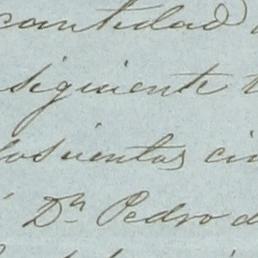 cantidad
siguiente
dosientas
Dn Pedro d